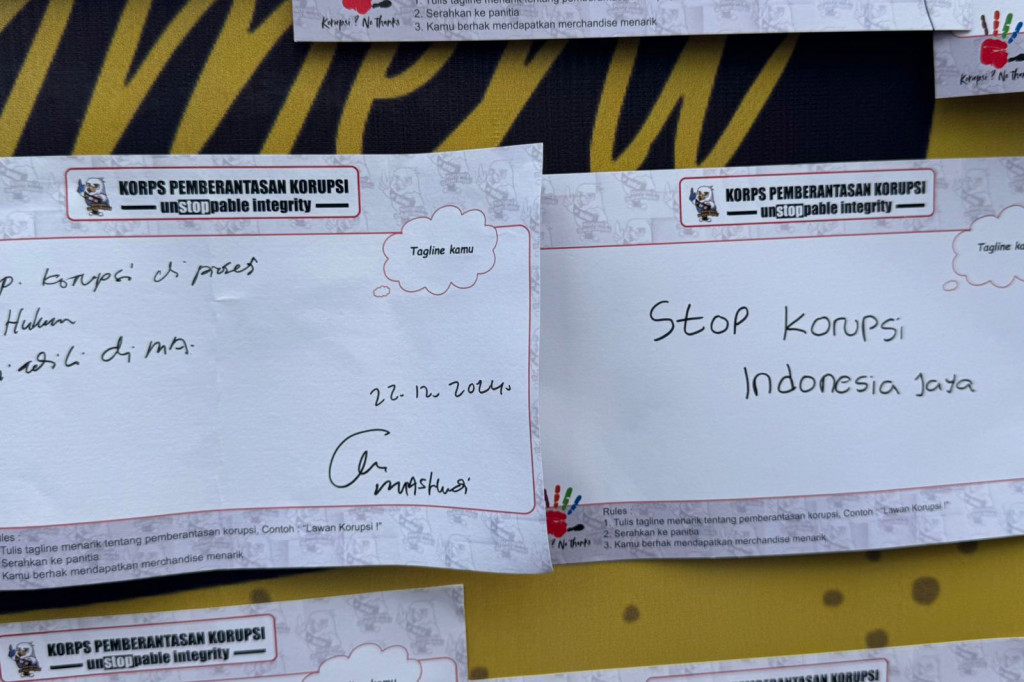 1. Tulis tagline menarik tentang
2. Serahkan ke panitia
3. Kamu berhak mendapatkan merchandise menarik
Korupsi ? No Thanks
Korupsi ? No Than
KORPS PEMBERANTASAN KORUPSI
unstoppable integrity
Tagline kamu
p. Korupsi di proses
Hukum
adili di MA.
22.12.2024.
Mashudi
les :
Tulis tagline menarik tentang pemberantasan korupsi, Contoh : "Lawan Korupsi !"
Serahkan ke panitia
Kamu berhak mendapatkan merchandise menarik
KORPS PEMBERANTASAN KORUPSI
unstoppable integrity
Tagline ka
Stop Korupsi
Indonesia Jaya
? No Thanks
Rules :
1. Tulis tagline menarik tentang pemberantasan korupsi, Contoh : "Lawan Korupsi !"
2. Serahkan ke panitia
3. Kamu berhak mendapatkan merchandise menarik
KORPS PEMBERANTASAN KORUPSI
unstoppable integrity
PEMBERANTASAN KORUPSI